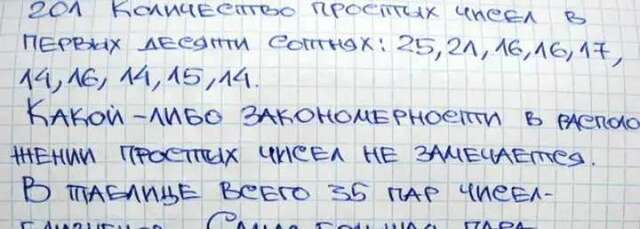 201 Количество простых чисел в
первых десяти сотнях: 25, 21, 16, 16, 17,
14, 16, 14, 15, 14.
Какой-либо закономерности в располо
жении простых чисел не замечается.
В таблице всего 35 пар чисел-
Самая большая пара